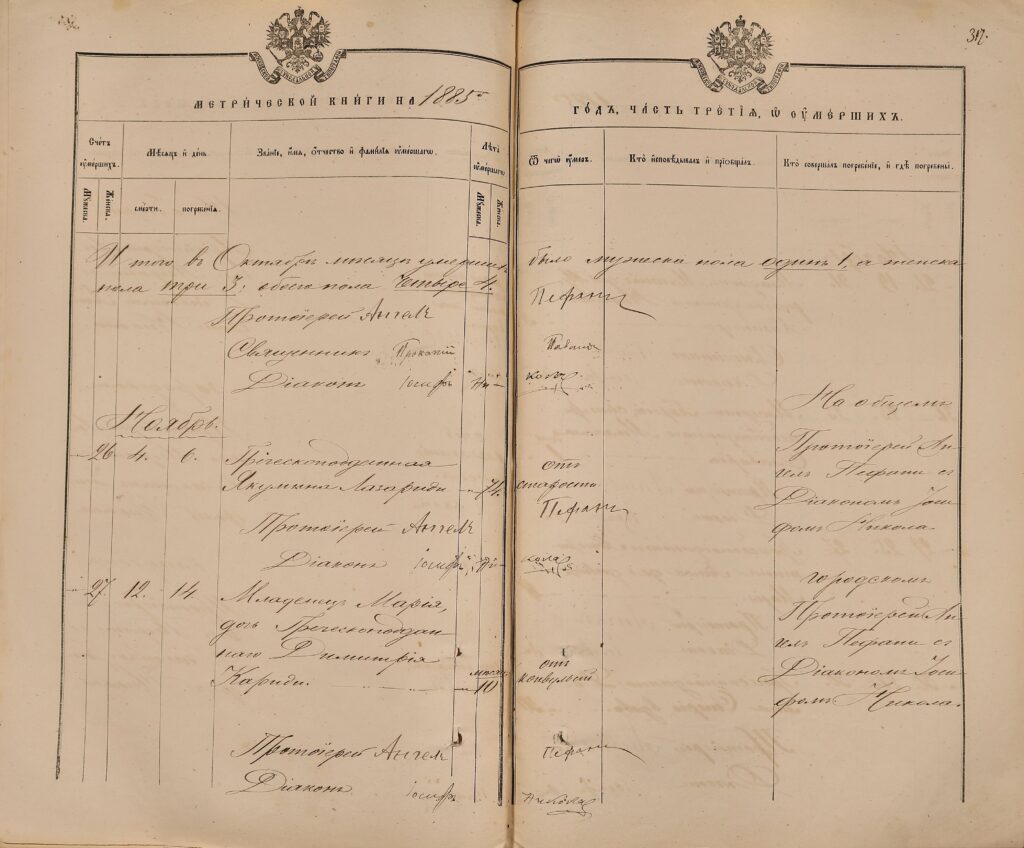 317.
МЕТРИЧЕСКОЙ КНИГИ НА 1885 ГОДЪ, ЧАСТЬ ТРЕТІЯ, Ѿ ОУМЕРШИХЪ.
Счетъ оумершихъ.
Мѣсяцъ и день.
Званіе, имя, отчество и фамилія оумершаго.
Лѣта оумершаго
Ѿ чего оумеръ.
Кто исповѣдывалъ и пріобщалъ.
Кто совершалъ погребеніе, и гдѣ погребены.
Мужеска.
Женска.
смерти.
погребенія.
Мужеска.
Женска.
Итого въ Октябрѣ мѣсяцѣ умершихъ было мужеска пола одинъ 1, а женска
пола три 3; обоего пола четыре 4.
Протоіерей Ангелъ Пефани
Священникъ Прокопій
Діаконъ Іосифъ Никола
Ноябрь.
26. 4. 6. Греческоподданная
Якумина Лазариди 74.
отъ
старости
На общемъ
Протоіерей Ан-
гелъ Пефани съ
Діакономъ Іоси-
фомъ Никола.
Протоіерей Ангелъ Пефани
Діаконъ Іосифъ Никола
27. 12. 14. Младенецъ Марія,
дочь Греческоподдан-
наго Димитрія
Кариди. мѣсяц. 10
отъ
конвульсій
городскомъ
Протоіерей Ан-
гелъ Пефани съ
Діакономъ Іоси-
фомъ Никола.
Протоіерей Ангелъ Пефани
Діаконъ Іосифъ Никола